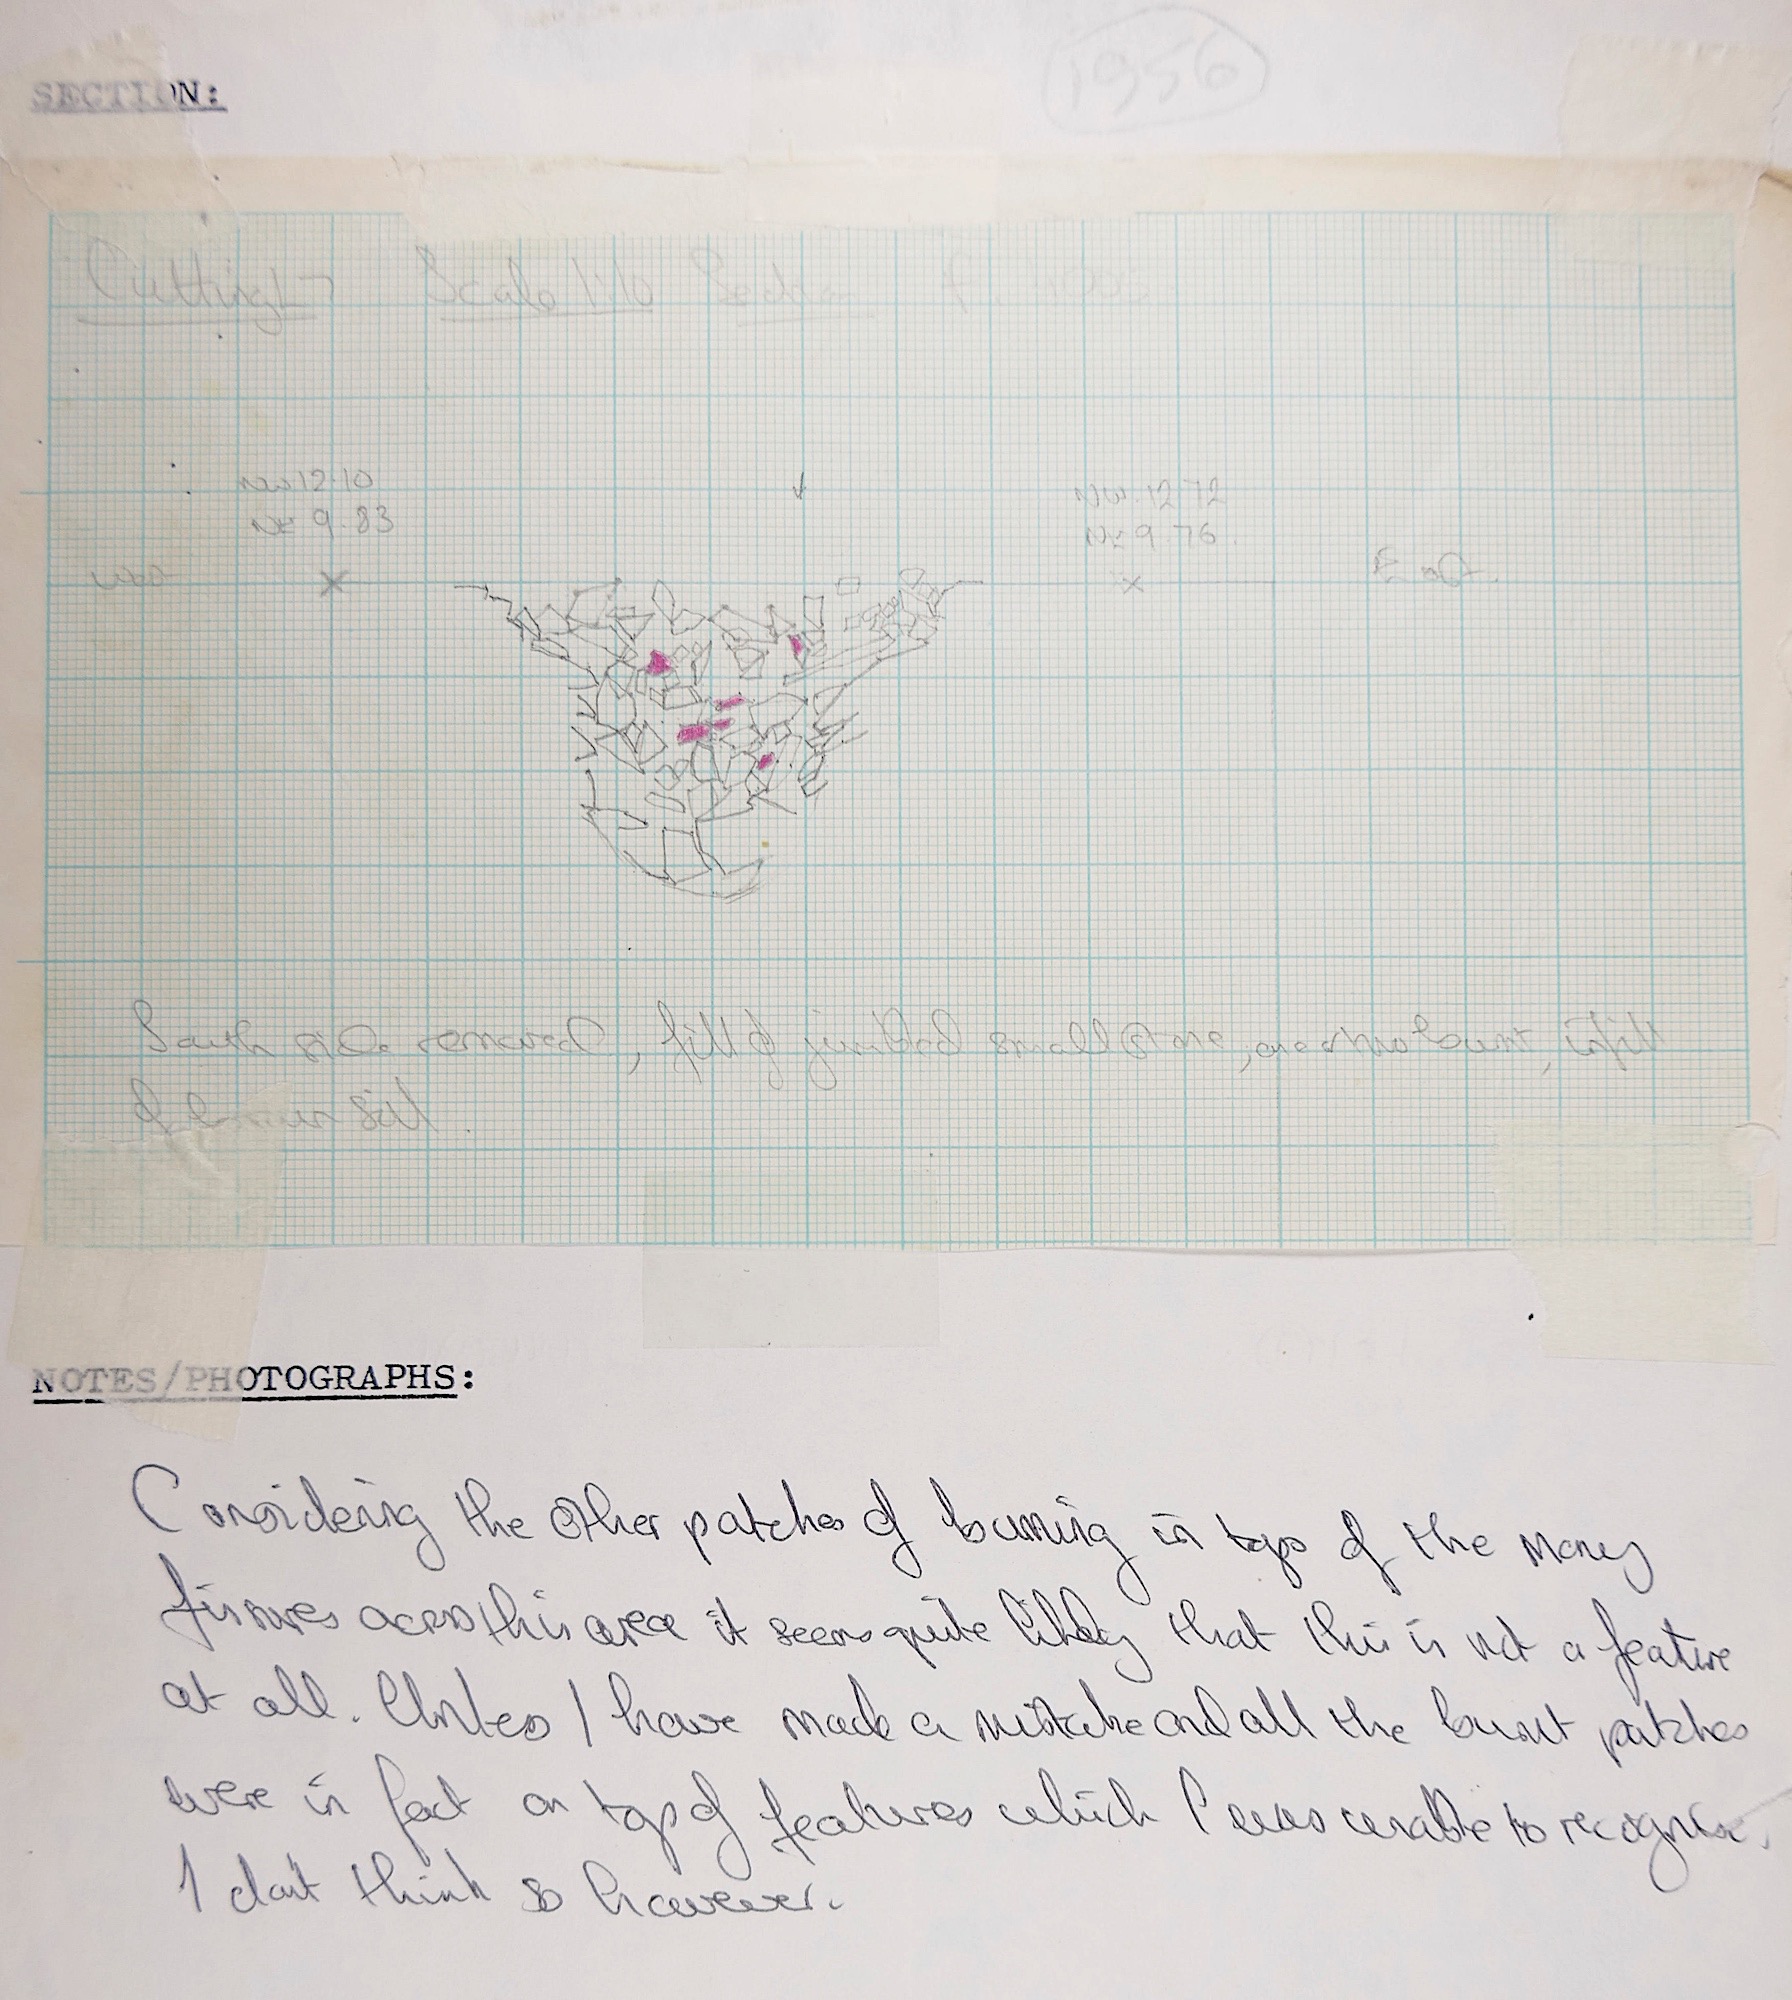 1956
SECTION:
Cutting L7 Scale 1:10 Section F. 4005
NW 12.10
NE 9.83
NW. 12.72
NE 9.76.
West
East.
South side removed, fill of jumbled small stone, one or two burnt, infill
of brown soil.
NOTES/PHOTOGRAPHS:
Considering the other patches of burning in tops of the many
fissures across this area it seems quite likely that this is not a feature
at all. Unless I have made a mistake and all the burnt patches
were in fact on top of features which I was unable to recognise.
I don't think so however.